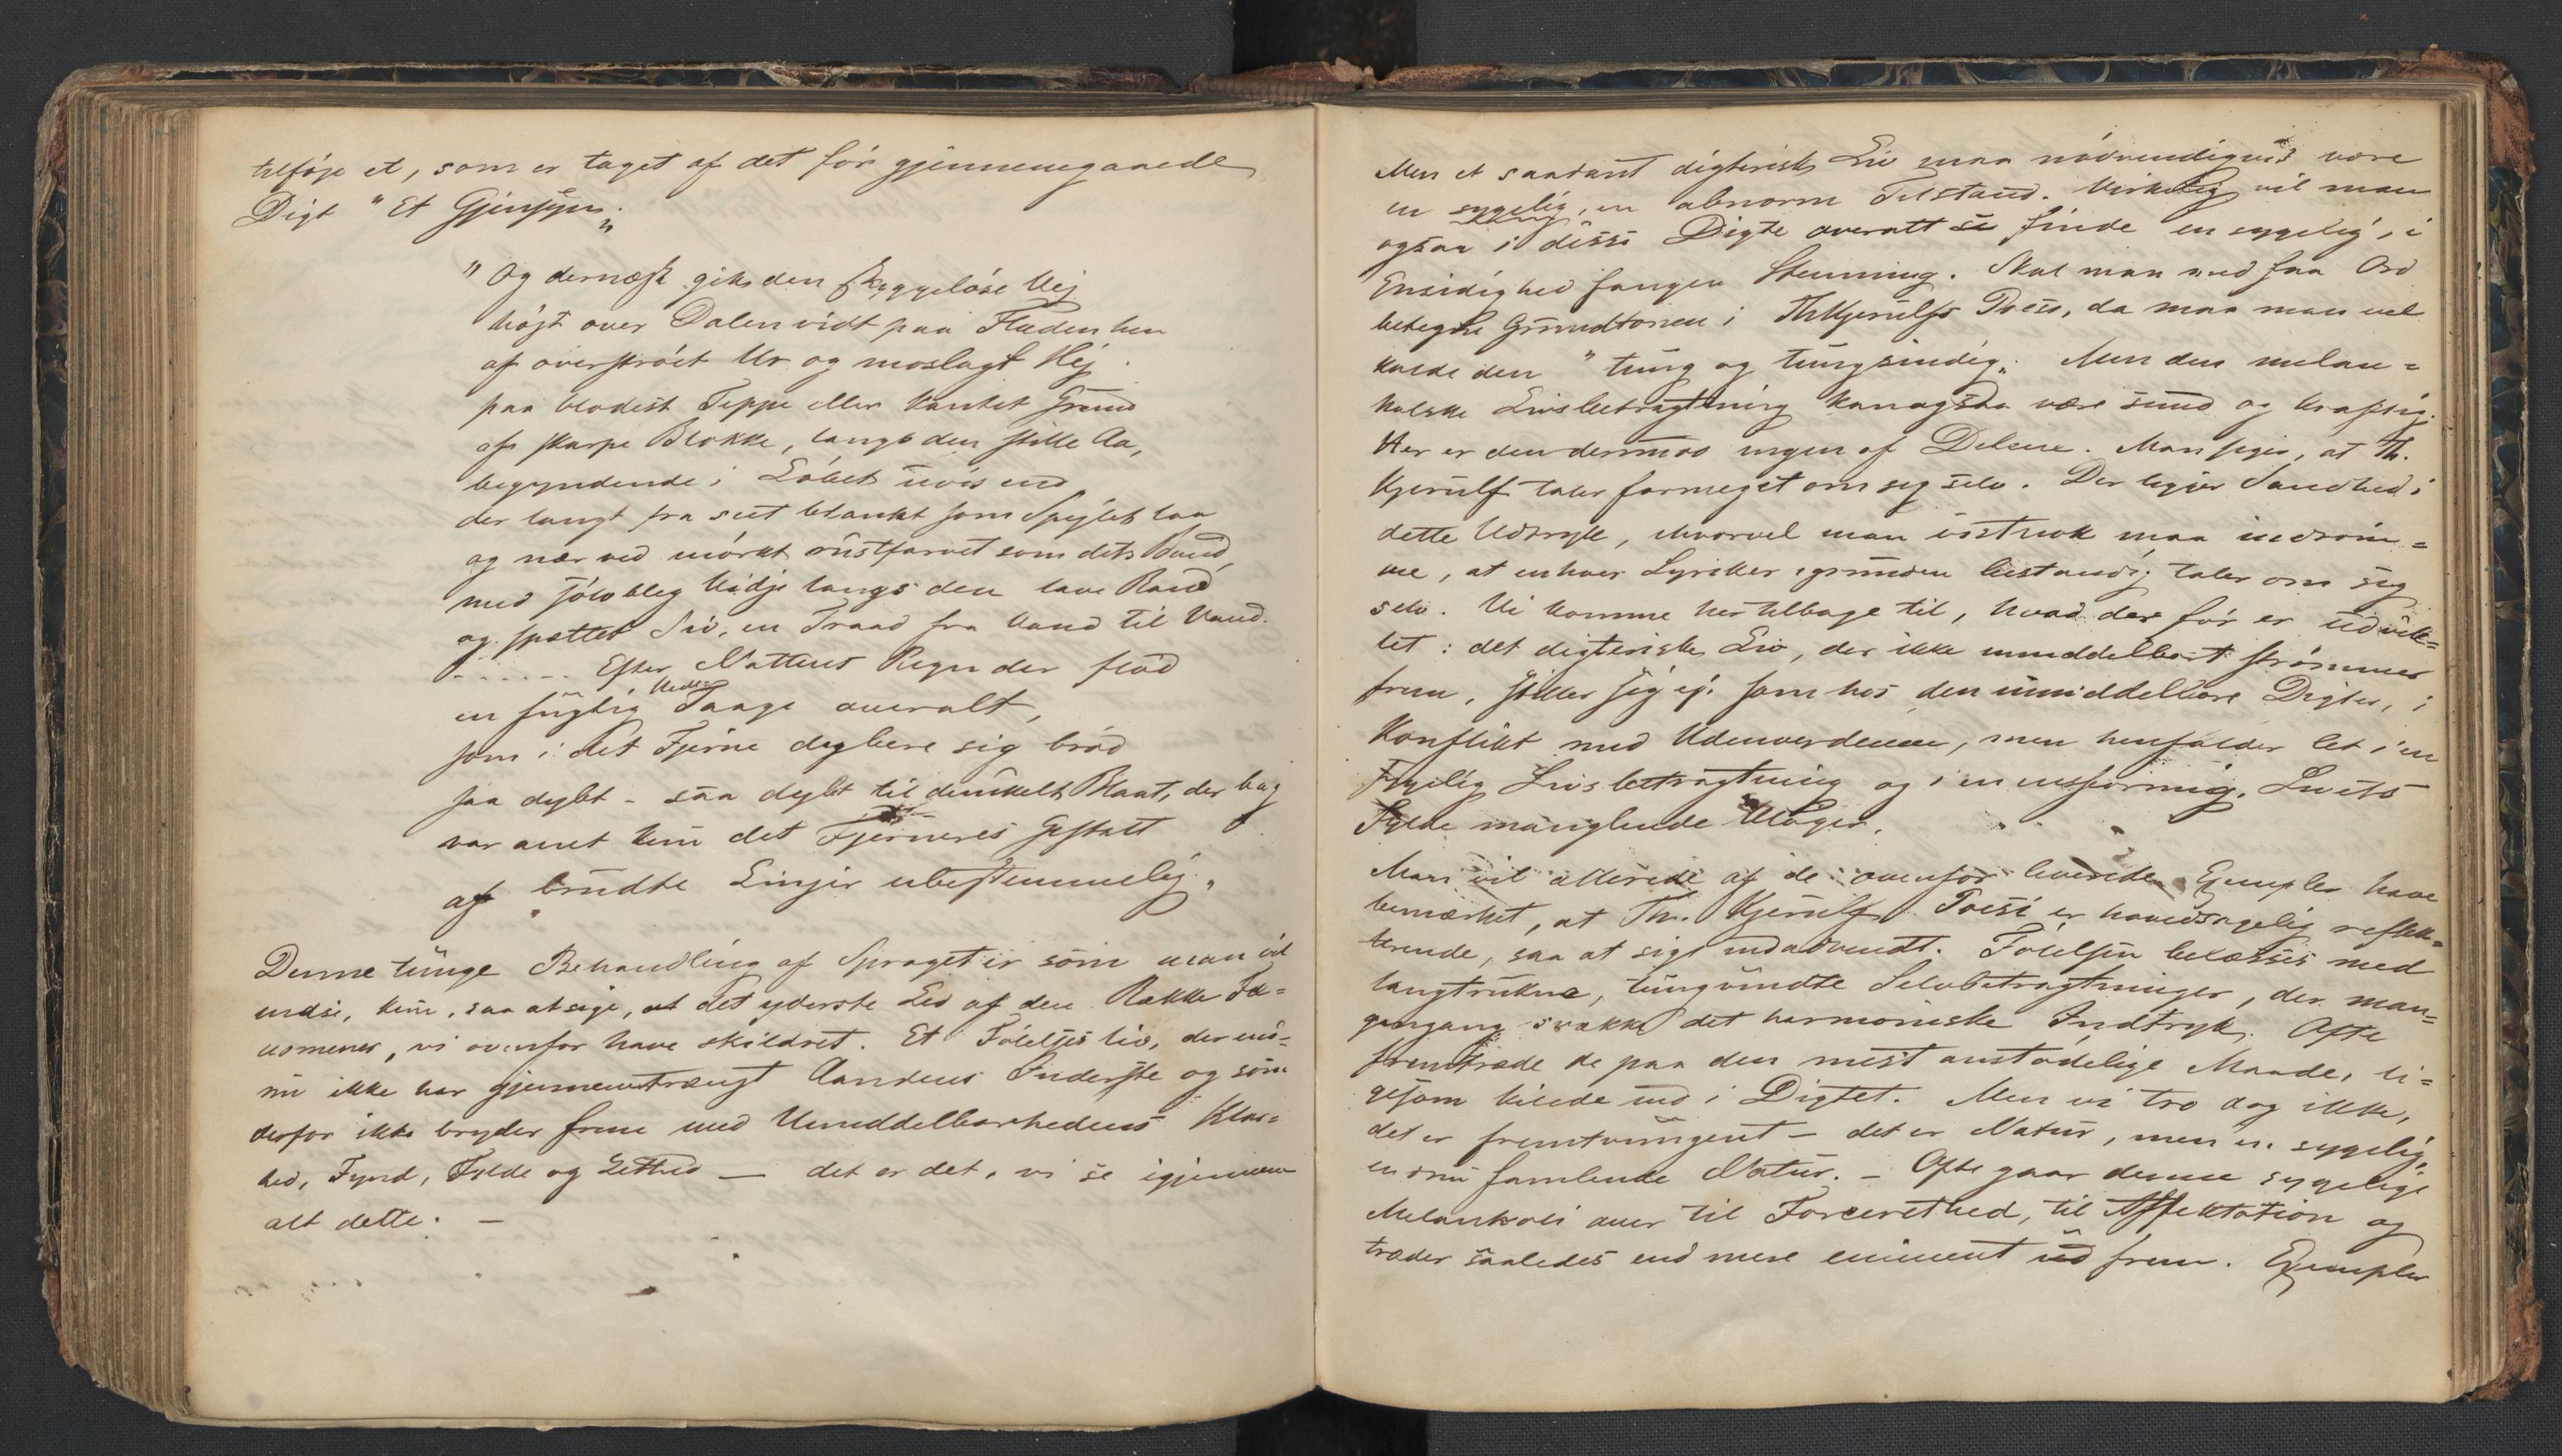 tilføje et, som er taget af det før gjennemgaaede
Digt "Et Gjensyn".
"Og dernæst gik den skyggeløse Vej
højt over Dalen vidt paa Fladen hen
af overstrøet Ur og moslagt Hej
paa blødest Teppe eller kantet Grund
af skarpe Blokke, langs den stille Aa,
begyndende i Løbet uvis end
der langt fra seet blankt som Spejlet laa
og nær ved mørkt rustfarvet som dets Bund,
med sølvbleg Vidje langs den lave Rand
og spættet Siv, en Traad fra Vand til Vand.
. . . . . . Efter Nattens Regn der flød
en fugtig Taage overalt,
som i det Fjerne dybere sig brød
saa dybt - saa dybt til dunkelt Blaat, der bag
var anet kun det Fjerneres Gestalt
af brudte Linjer ubestemmelig."
Denne tunge Behandling af Sproget er som man vil
indse, kun, saa at sige, det yderste Led af den Række Fæ=
nomener, vi ovenfor have skildret. Et Følelsesliv, der end=
nu ikke har gjennemtrængt Aandens Inderste og som
derfor ikke bryder frem med Umiddelbarhedens Klar=
hed, Fynd, Fylde og Lethed — det er det, vi se igjennem
alt dette. —
Men et saadant digterisk Liv maa nødvendigvis være
en sygelig, en abnorm Tilstand. Virkelig vil man
ogsaa i disse Digte overalt finde en sygelig, i
Ensidighed fangen Stemning. Skal man med faa Ord
betegne Grundtonen i Th Kjerulfs Poesi, da maa man vel
kalde den "tung og tungsindig". Men den melan=
kolske Livsbetragtning kan ogsaa være sund og kraftig.
Her er den derimod ingen af Delene. Man siger, at Th.
Kjerulf taler formeget om sig selv. Der ligger Sandhed i
dette Udtryk, hvorvel man istrux maa indrøm=
me, at enhver Lyriker igrunden bestandig taler om sig
selv. Vi komme her tilbage til, hvad der før er udvik=
let: det digteriske Liv, der ikke umiddelbart strømmer
frem, stiller sig ej som hos den umiddelbare Digter, i
Konflikt med Udenverdenen, men henfalder let i en
sygelig Livsbetragtning og i en ensformig, Livets
Fylde manglende Klagen.
Man vil allerede af de ovenfor leverede Exempler have
bemærket, at Th. Kjerulfs Poesi er hovedsagelig reflek=
terende, saa at sige indadvendt. Følelsen belæsses med
langtrukne, tungvundte Selvbetragtninger, der man=
gengang svække det harmoniske Indtryk. Ofte
fremtræde de paa den mest anstødelige Maade, li=
gesom kilede ind i Digtet. Men vi tro dog ikke,
det er fremtvungent — det er Natur, men en sygelig,
endnu famlende Natur. — Ofte gaar denne sygelige
Melankoli over til Forcerethed, til Affektation og
træder saaledes end mere eminent frem. Exempler